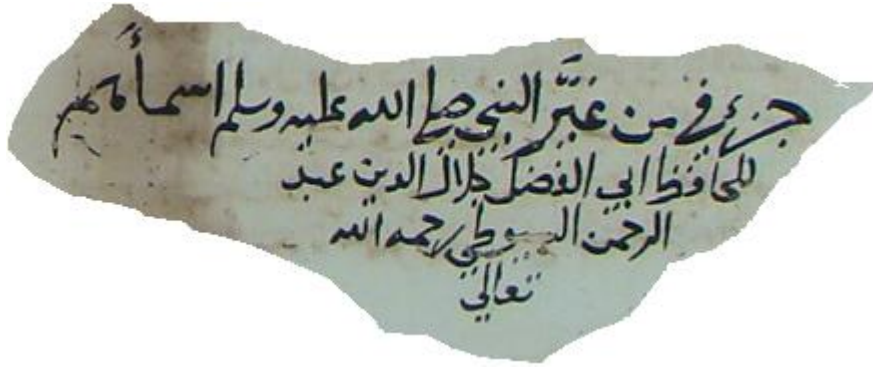 جزء في من غَيَّر النبي صلى الله عليه وسلم اسمأهم
للحافظ ابي الفضل جلال الدين عبد
الرحمن السيوطي رحمه الله
تعالى